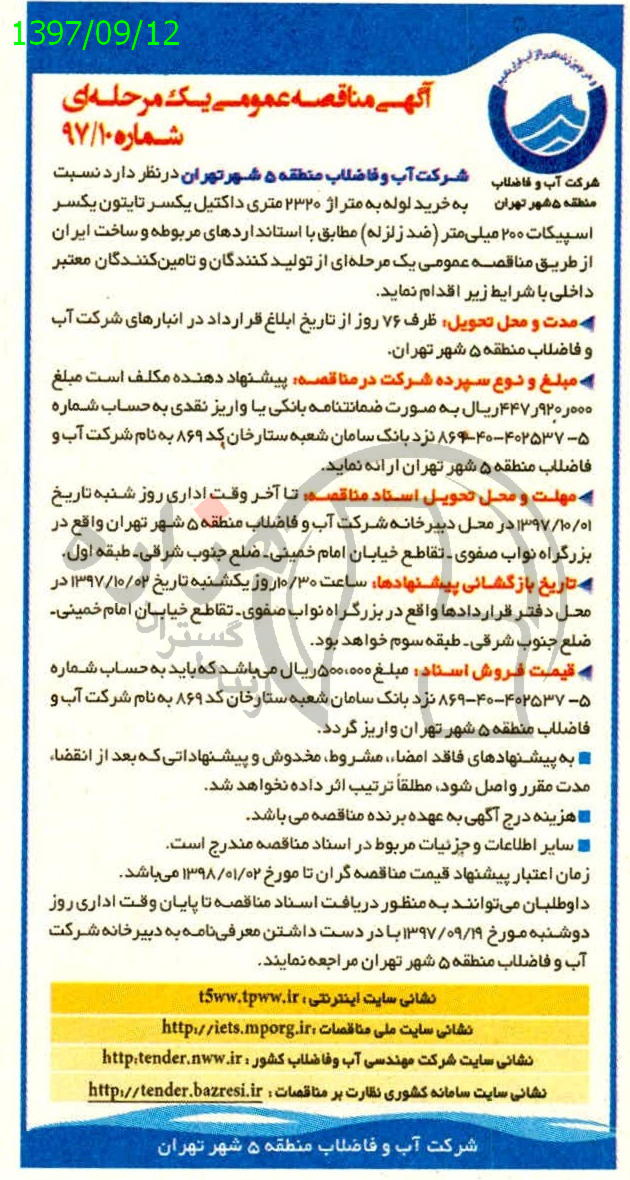 1397/09/12
آگهی مناقصه عمومی یک مرحله‌ای
شماره ۹۷/۱۰
شرکت آب و فاضلاب
منطقه ۵ شهر تهران
شرکت آب و فاضلاب منطقه ۵ شهر تهران در نظر دارد نسبت
به خرید لوله به متراژ ۲۳۲۰ متری داکتیل یکسر تایتون یکسر
اسپیکات ۲۰۰ میلی‌متر (ضد زلزله) مطابق با استانداردهای مربوطه و ساخت ایران
از طریق مناقصه عمومی یک مرحله‌ای از تولید کنندگان و تامین‌کنندگان معتبر
داخلی با شرایط زیر اقدام نماید.
مدت و محل تحویل: ظرف ۷۶ روز از تاریخ ابلاغ قرارداد در انبارهای شرکت آب
و فاضلاب منطقه ۵ شهر تهران.
مبلغ و نوع سپرده شرکت در مناقصه: پیشنهاد دهنده مکلف است مبلغ
۴۴۷ر۹۲۰ر۰۰۰ ریال به صورت ضمانتنامه بانکی یا واریز نقدی به حساب شماره
۵-۸۶۹-۴۰-۴۰۲۵۳۷ نزد بانک سامان شعبه ستارخان کد ۸۶۹ به نام شرکت آب و
فاضلاب منطقه ۵ شهر تهران ارائه نماید.
مهلت و محل تحویل اسناد مناقصه: تا آخر وقت اداری روز شنبه تاریخ
۱۳۹۷/۱۰/۰۱ در محل دبیرخانه شرکت آب و فاضلاب منطقه ۵ شهر تهران واقع در
بزرگراه نواب صفوی ـ تقاطع خیابان امام خمینی ـ ضلع جنوب شرقی ـ طبقه اول.
تاریخ بازگشائی پیشنهادها: ساعت ۱۰/۳۰ روز یکشنبه تاریخ ۱۳۹۷/۱۰/۰۲ در
محل دفتر قراردادها واقع در بزرگراه نواب صفوی ـ تقاطع خیابان امام خمینی ـ
ضلع جنوب شرقی ـ طبقه سوم خواهد بود.
قیمت فروش اسناد: مبلغ ۵۰۰،۰۰۰ ریال می‌باشد که باید به حساب شماره
۵-۸۶۹-۴۰-۴۰۲۵۳۷ نزد بانک سامان شعبه ستارخان کد ۸۶۹ به نام شرکت آب و
فاضلاب منطقه ۵ شهر تهران واریز گردد.
به پیشنهادهای فاقد امضاء، مشروط، مخدوش و پیشنهاداتی که بعد از انقضاء
مدت مقرر واصل شود، مطلقاً ترتیب اثر داده نخواهد شد.
هزینه درج آگهی به عهده برنده مناقصه می باشد.
سایر اطلاعات و جزئیات مربوط در اسناد مناقصه مندرج است.
زمان اعتبار پیشنهاد قیمت مناقصه گران تا مورخ ۱۳۹۸/۰۱/۰۲ می‌باشد.
داوطلبان می‌توانند به منظور دریافت اسناد مناقصه تا پایان وقت اداری روز
دوشنبه مورخ ۱۳۹۷/۰۹/۱۹ با در دست داشتن معرفی‌نامه به دبیرخانه شرکت
آب و فاضلاب منطقه ۵ شهر تهران مراجعه نمایند.
نشانی سایت اینترنتی: t5ww.tpww.ir
نشانی سایت ملی مناقصات: http://iets.mporg.ir
نشانی سایت شرکت مهندسی آب وفاضلاب کشور: http:tender.nww.ir
نشانی سایت سامانه کشوری نظارت بر مناقصات: http://tender.bazresi.ir
شرکت آب و فاضلاب منطقه ۵ شهر تهران